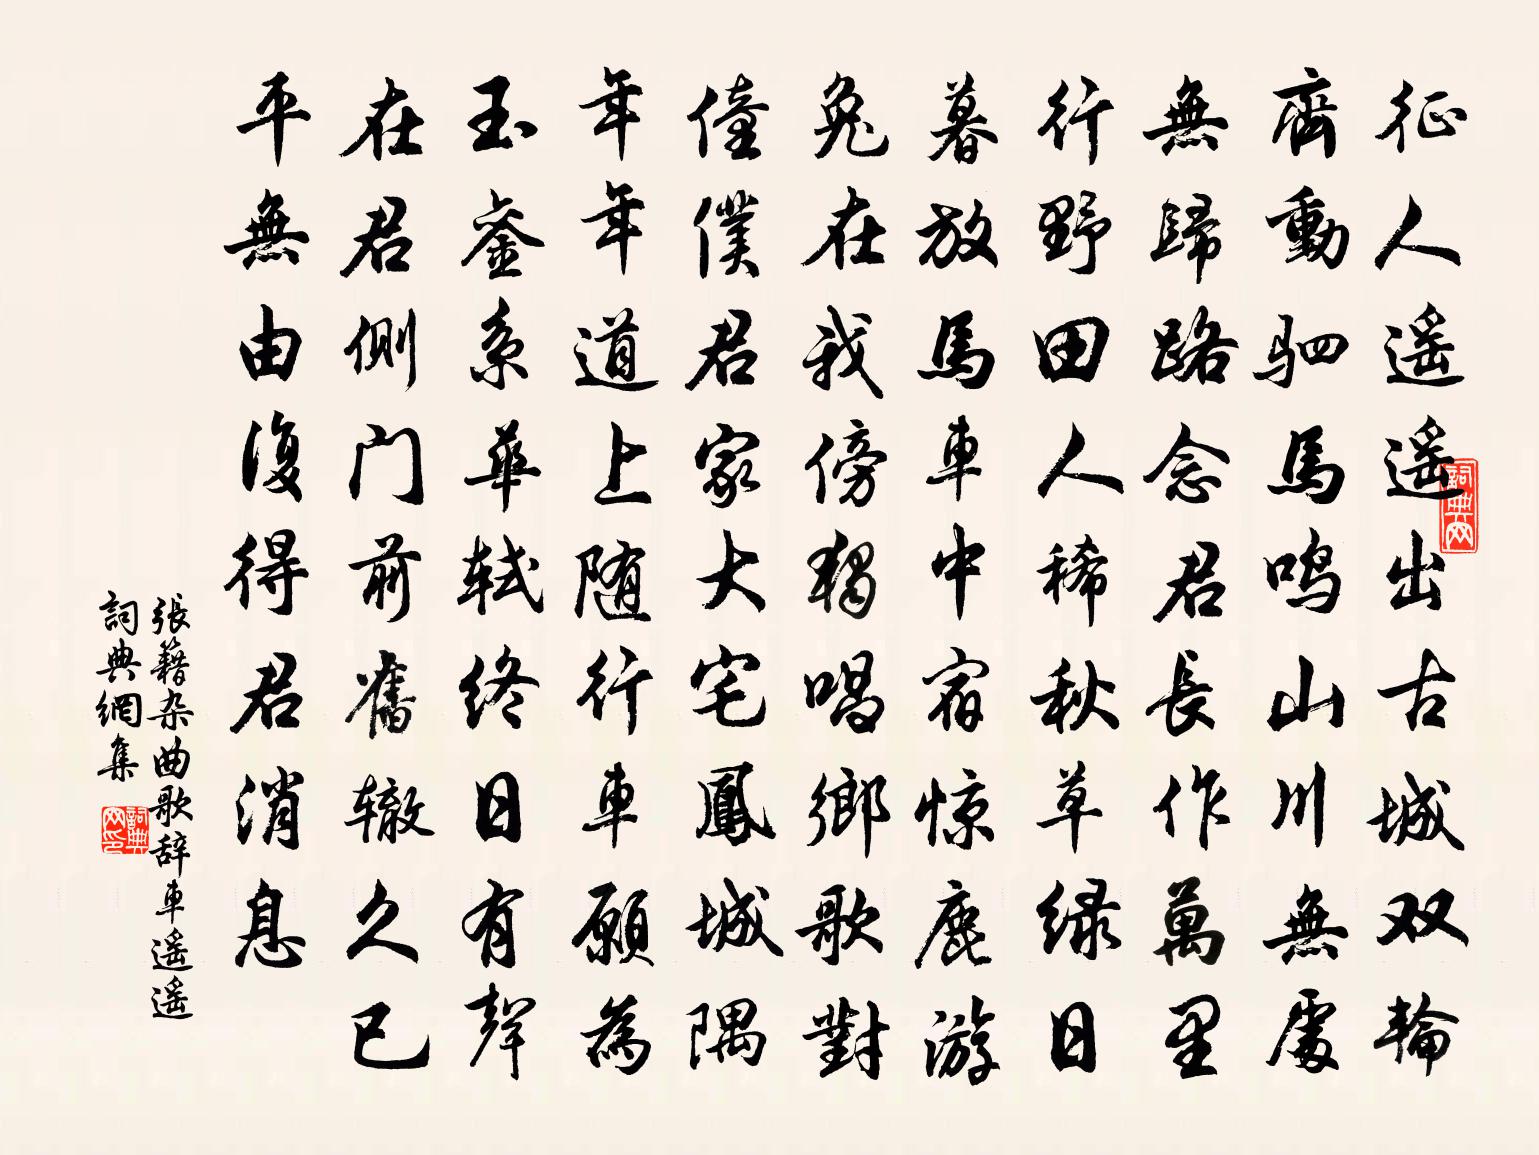 征人遥遥出古城双輪
齊動驷馬鸣山川無處
無歸路念君長作萬里
行野田人稀秋草緑日
暮放馬車中宿惊鹿游
兔在我傍獨唱鄉歌對
僮僕君家大宅鳳城隅
年年道上随行車願為
玉銮系華轼终日有聲
在君側门前舊辙久已
平無由復得君消息
張籍杂曲歌辞車遥遥
詞典網集
詞典网
詞典网印